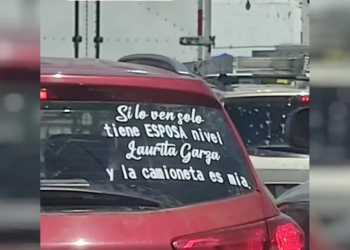 Si lo ven solo
tiene ESPOSA nivel
Laurita Garza
y la camioneta es mia.